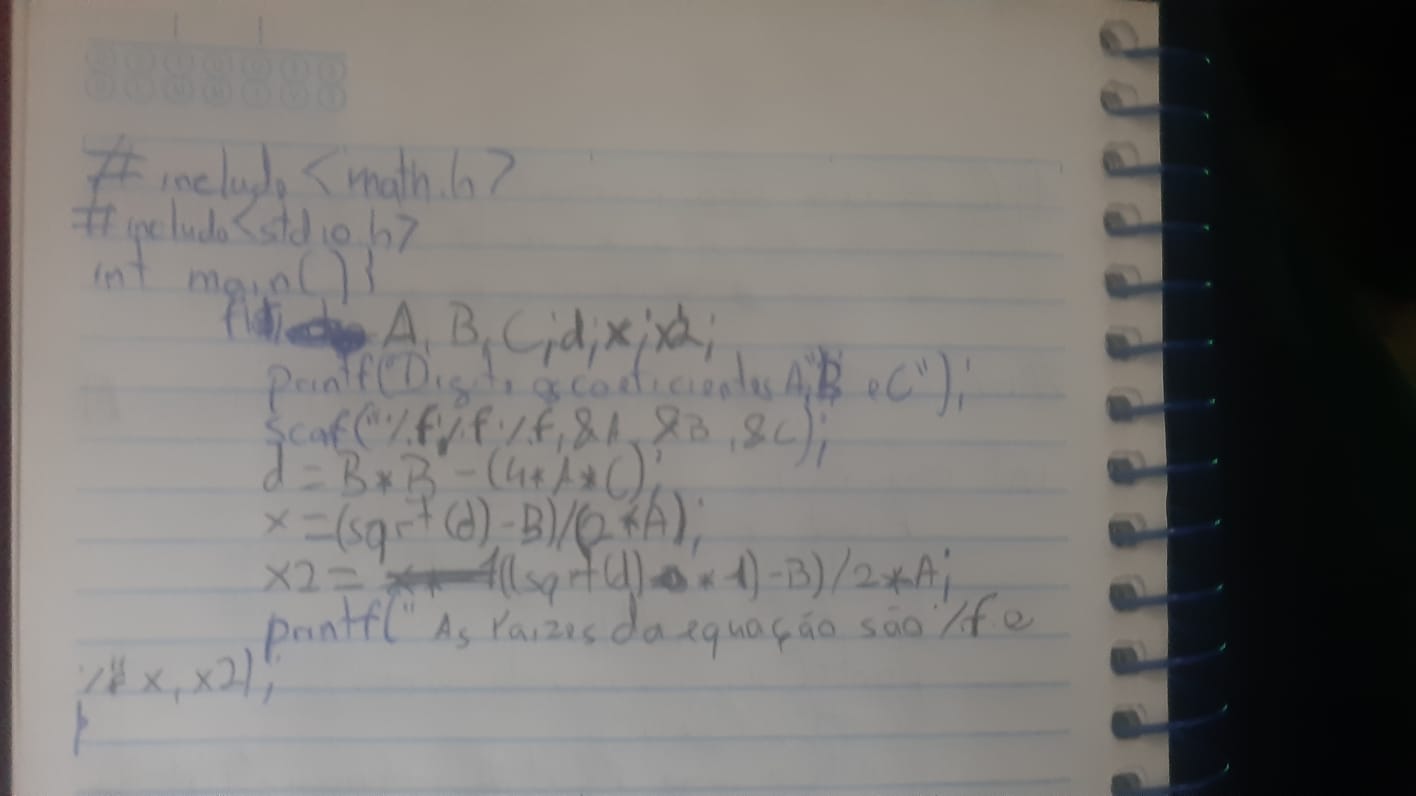 #include <math.h>
#include<stdio.h>
int main(){
A, B, C;d;x;x2;
printf("Digite os coeficientes A,B e C");
scaf("%f%f%f, &A, &B, &C);
d = B*B -(4*A*C);
x =(sqrt(d)-B)/(2*A);
x2 = ((sqrt(d) *-1)-B)/2*A;
printf("As raizes da equação são %f e
%f" x, x2);
}